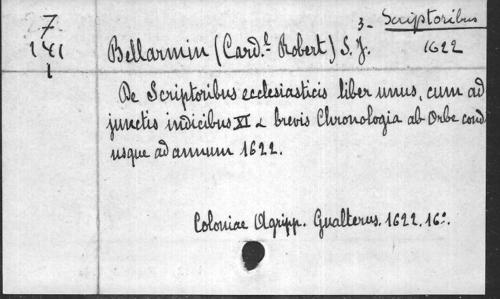 7. 3- Scriptoribus
141 Bellarmin (Card.l Robert) S. J. 1622
1
De Scriptoribus ecclesiasticis liber unus, cum ad
junctis indicibus XI & brevis Chronologia ab Orbe cond
usque ad annum 1622.
Coloniae Agripp. Gualterus. 1622. 16o.